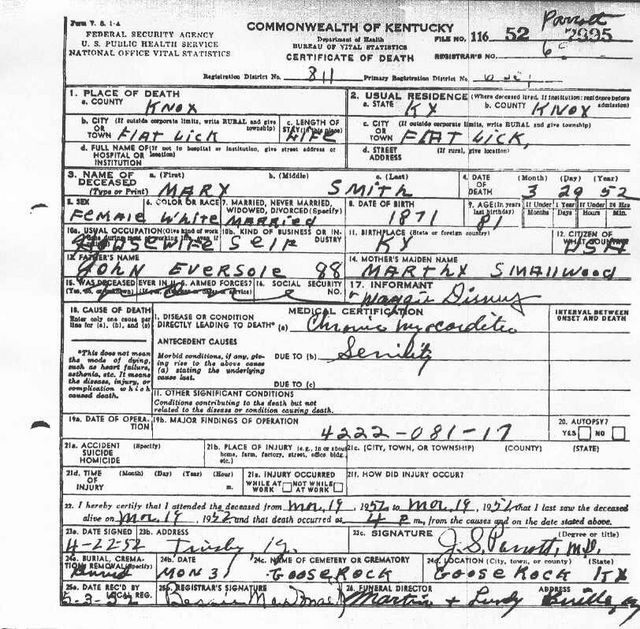 Form V. S. 1-A
FEDERAL SECURITY AGENCY
U. S. PUBLIC HEALTH SERVICE
NATIONAL OFFICE VITAL STATISTICS
COMMONWEALTH OF KENTUCKY
Department of Health
BUREAU OF VITAL STATISTICS
CERTIFICATE OF DEATH
Parrott
FILE NO. 116 52 7995
REGISTRAR'S NO.
Registration District No. 811 Primary Registration District No.
1. PLACE OF DEATH
a. COUNTY KNOX
2. USUAL RESIDENCE (Where deceased lived. If institution: residence before admission)
a. STATE KY b. COUNTY KNOX
b. CITY (If outside corporate limits, write RURAL and give township)
OR TOWN FLAT LICK
c. LENGTH OF STAY (in this place) LIFE
c. CITY (If outside corporate limits, write RURAL and give township)
OR TOWN FLAT LICK,
d. FULL NAME OF (If not in hospital or institution, give street address or location)
HOSPITAL OR INSTITUTION
d. STREET ADDRESS (If rural, give location)
3. NAME OF DECEASED (Type or Print)
a. (First) MARY b. (Middle) c. (Last) SMITH
4. DATE OF DEATH (Month) (Day) (Year) 3 29 52
5. SEX Female
6. COLOR OR RACE White
7. MARRIED, NEVER MARRIED, WIDOWED, DIVORCED (Specify) MARRIED
8. DATE OF BIRTH 1871
9. AGE (In years last birthday) 81
If Under 1 Year Months Days
If Under 24 Hrs Hours Min.
10a. USUAL OCCUPATION (Give kind of work done during most of working life, even if retired) HOUSEWIFE
10b. KIND OF BUSINESS OR INDUSTRY SELF
11. BIRTHPLACE (State or foreign country) KY
12. CITIZEN OF WHAT COUNTRY USA
13. FATHER'S NAME JOHN EVERSOLE 98
14. MOTHER'S MAIDEN NAME MARTHY SMALLWOOD
15. WAS DECEASED EVER IN U.S. ARMED FORCES?
(Yes, no, or unknown)
16. SOCIAL SECURITY NO.
17. INFORMANT Maggie
18. CAUSE OF DEATH
Enter only one cause per line for (a), (b), and (c)
*This does not mean the mode of dying, such as heart failure, asthenia, etc. It means the disease, injury, or complication which caused death.
MEDICAL CERTIFICATION
INTERVAL BETWEEN ONSET AND DEATH
I. DISEASE OR CONDITION
DIRECTLY LEADING TO DEATH* (a) Chronic myocarditis
ANTECEDENT CAUSES
Morbid conditions, if any, giving rise to the above cause (a) stating the underlying cause last.
DUE TO (b) Senility
DUE TO (c)
II. OTHER SIGNIFICANT CONDITIONS
Conditions contributing to the death but not related to the disease or condition causing death.
19a. DATE OF OPERATION
19b. MAJOR FINDINGS OF OPERATION
4222-081-17
20. AUTOPSY?
YES NO
21a. ACCIDENT SUICIDE HOMICIDE (Specify)
21b. PLACE OF INJURY (e.g., in or about home, farm, factory, street, office bldg., etc.)
21c. (CITY, TOWN, OR TOWNSHIP) (COUNTY) (STATE)
21d. TIME OF INJURY (Month) (Day) (Year) (Hour) m.
21e. INJURY OCCURRED
WHILE AT WORK NOT WHILE AT WORK
21f. HOW DID INJURY OCCUR?
22. I hereby certify that I attended the deceased from Mar 19, 1952 to Mar 19, 1952 that I last saw the deceased
alive on Mar 19, 1952 and that death occurred at 4 P m., from the causes and on the date stated above.
23a. DATE SIGNED 4-22-52
23b. ADDRESS
23c. SIGNATURE (Degree or title) J. S. Parrott, M.D.
24a. BURIAL, CREMATION, REMOVAL (Specify) Burial
24b. DATE MON 31
24c. NAME OF CEMETERY OR CREMATORY GOOSE ROCK
24d. LOCATION (City, town, or county) (State) GOOSE ROCK KY
25a. DATE REC'D BY LOCAL REG. 5-3-52
25b. REGISTRAR'S SIGNATURE
26. FUNERAL DIRECTOR ADDRESS
Martin +